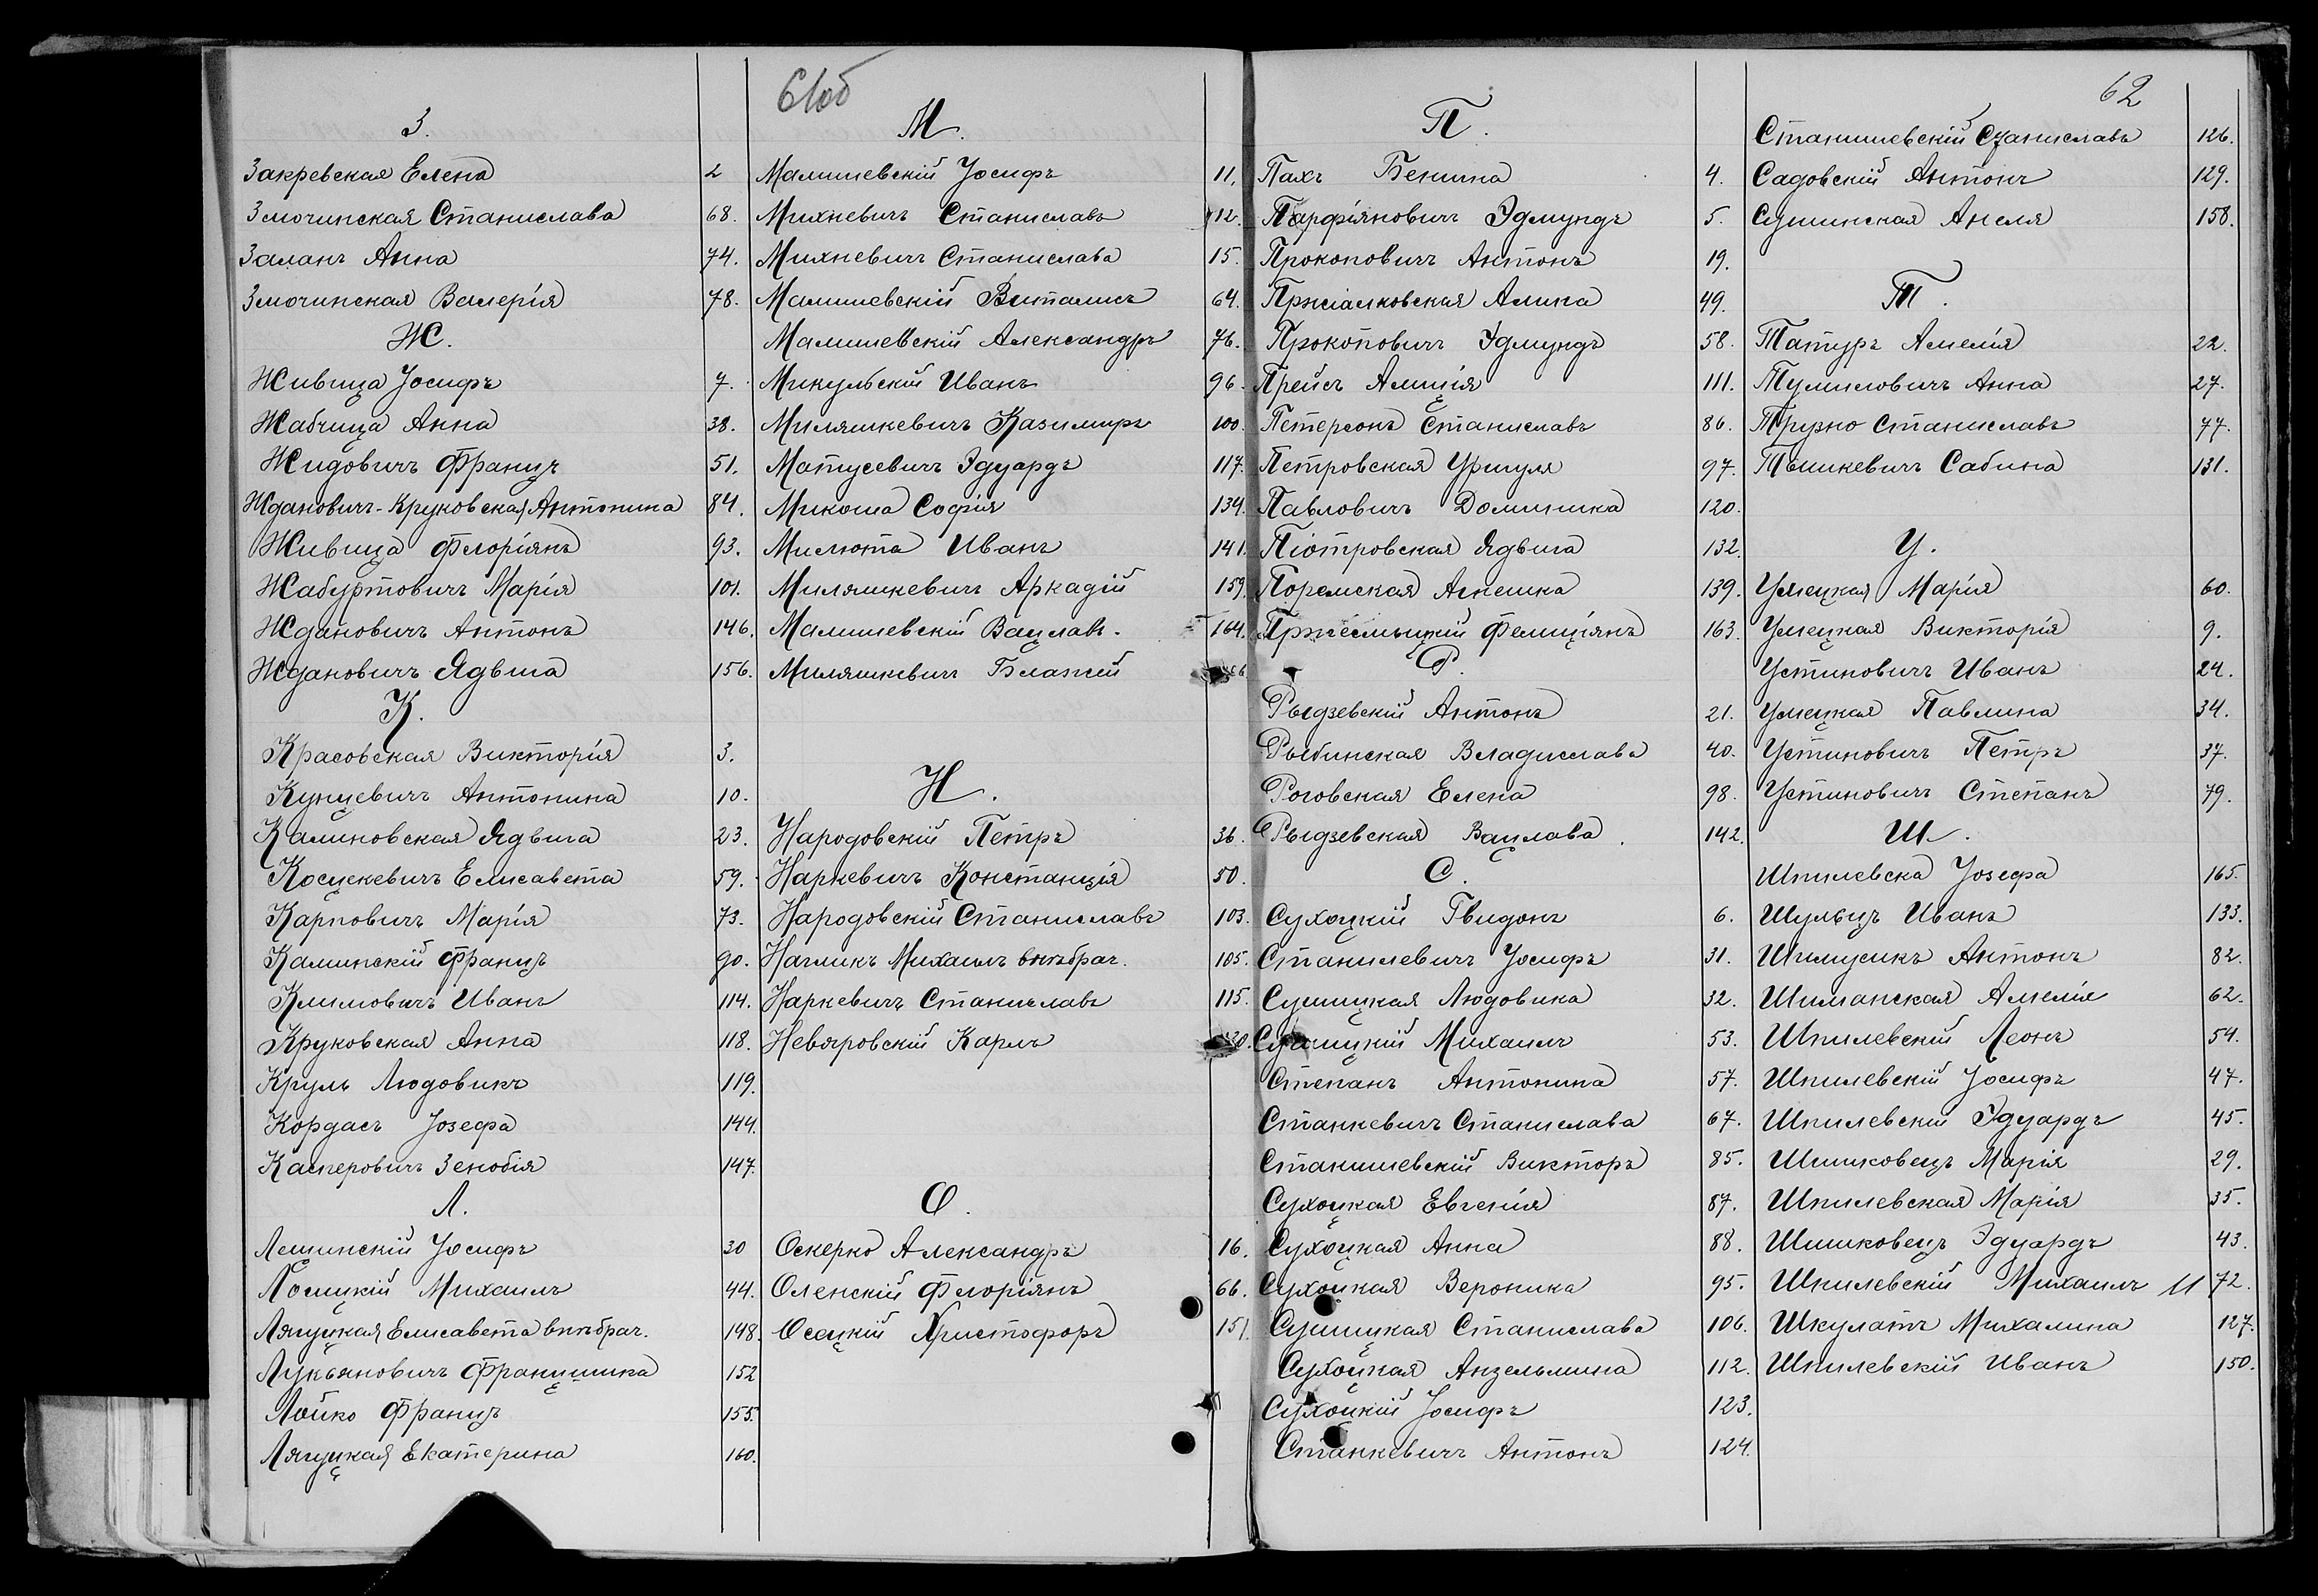 61об
З.
Закревская Елена 2
Змочинская Станислава 68.
Заланъ Анна 74.
Змочинская Валерія 78.
Ж.
Живица Іосифъ 7.
Жабчица Анна 38.
Жидовичъ Францъ 51.
Ждановичъ-Круковская Антонина 84.
Живица Флоріянъ 93.
Жабуртовичъ Марія 101.
Ждановичъ Антонъ 146.
Ждановичъ Ядвига 156.
К.
Красовская Викторія 3.
Кунцевичъ Антонина 10.
Калиновская Ядвига 23.
Косцекевичъ Елисавета 59.
Карповичъ Марія 73.
Каминскій Францъ 90.
Климовичъ Иванъ 114.
Круковская Анна 118.
Круль Людовикъ 119.
Кордасъ Іозефа 144.
Касперовичъ Зенобія 147.
Л.
Лешинскій Іосифъ 30
Лосицкій Михаилъ 44.
Лягуцкая Елисавета внѣбрач. 148.
Лукьяновичъ Францишка 152
Лойко Францъ 155.
Лягуцкая Екатерина 160.
М.
Малишевскій Іосифъ 11.
Михневичъ Станиславъ 12.
Михневичъ Станислава 15.
Малишевскій Виталисъ 64.
Малишевскій Александръ 76.
Микульскій Иванъ 96.
Миляшкевичъ Казимиръ 100.
Матусевичъ Эдуардъ 117.
Микоша Софія 134.
Милюта Иванъ 141.
Миляшкевичъ Аркадій 159.
Малишевскій Вацлавъ. 164.
Миляшкевичъ Блажей
Н.
Народовскій Петръ 36.
Наркевичъ Констанція 50.
Народовскій Станиславъ 103.
Нагликъ Михаилъ внѣбрач. 105.
Наркевичъ Станиславъ 115.
Невяровскій Карлъ
О.
Оскерко Александръ 16.
Оленскій Флоріянъ 66.
Осецкій Христофоръ 151.
П.
Пахъ Бенина 4.
Парфіяновичъ Эдмундъ 5.
Прокоповичъ Антонъ 19.
Пржіалковская Алина 49.
Прокоповичъ Эдмундъ 58.
Прейсъ Алиція 111.
Петерсонъ Станиславъ 86.
Петровская Уршуля 97.
Павловичъ Доминика 120.
Піотровская Ядвига 132.
Поремская Агнешка 139.
Пржесмыцкій Фелиціянъ 163.
Р.
Рыдзевскій Антонъ 21.
Рыбинская Владислава 40.
Роговская Елена 98.
Рыдзевская Вацлава 142.
С.
Сухоцкій Гвидонъ 6.
Станилевичъ Іосифъ 31.
Сушицкая Людовика 32.
Сушицкій Михаилъ 53.
Степанъ Антонина 57.
Станкевичъ Станислава 67.
Станишевскій Викторъ 85.
Сухоцкая Евгенія 87.
Сухоцкая Анна 88.
Сухоцкая Вероника 95.
Сушицкая Станислава 106.
Сухоцкая Анзельмина 112.
Сухоцкій Іосифъ 123.
Станкевичъ Антонъ 124.
62
Станишевскій Станиславъ 126.
Садовскій Антонъ 129.
Сушинская Анеля 158.
Т.
Татуръ Амелія 22.
Тумиловичъ Анна 27.
Трузно Станиславъ 77.
Тышкевичъ Сабина 131.
У.
Умецкая Марія 60.
Умецкая Викторія 9.
Устиновичъ Иванъ 24.
Умецкая Павлина 34.
Устиновичъ Петръ 37.
Устиновичъ Степанъ 79.
Ш.
Шпилевска Іозефа 165.
Шульцъ Иванъ 133.
Антонъ 82.
Шиманская Амелія 62.
Шпилевскій Леонъ 54.
Шпилевскій Іосифъ 47.
Шпилевскій Эдуардъ 45.
Шишковецъ Марія 29.
Шпилевская Марія 35.
Шишковецъ Эдуардъ 43.
Шпилевскій Михаилъ 72.
Шкулатъ Михалина 127.
Шпилевскій Иванъ 150.